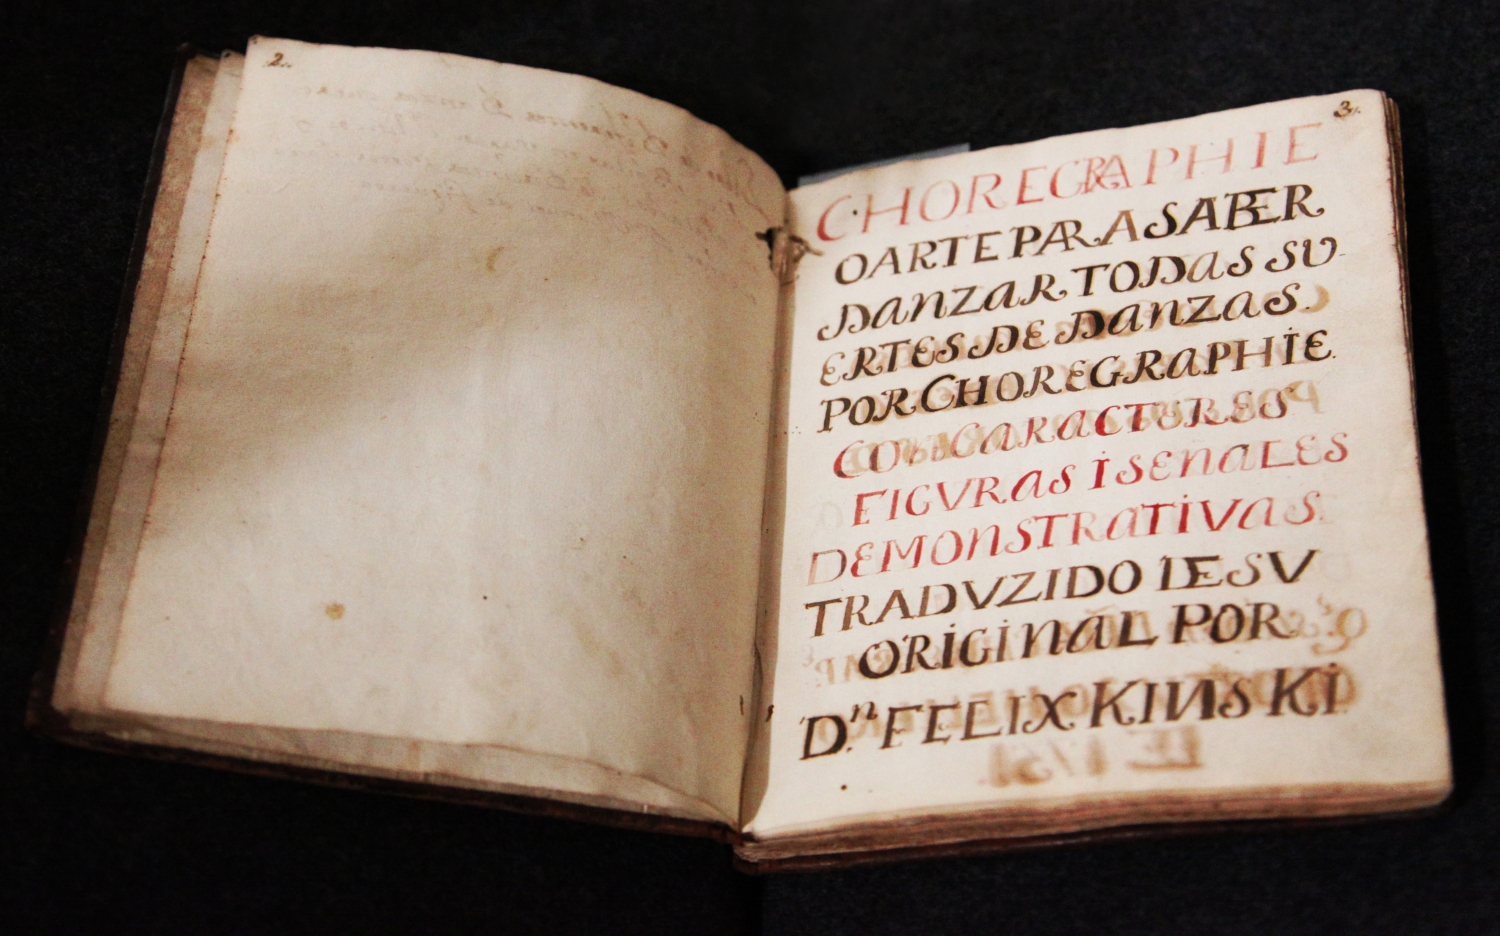 2.
3.
CHOREGRAPHIE
O ARTE PARA SABER
DANZAR TODAS SU-
ERTES DE DANZAS.
POR CHOREGRAPHIE.
CON CARACTERES
FIGVRAS I SENALES
DEMONSTRATIVAS.
TRADVZIDO DE SV
ORIGINAL POR
D.n FELIX KINSKI